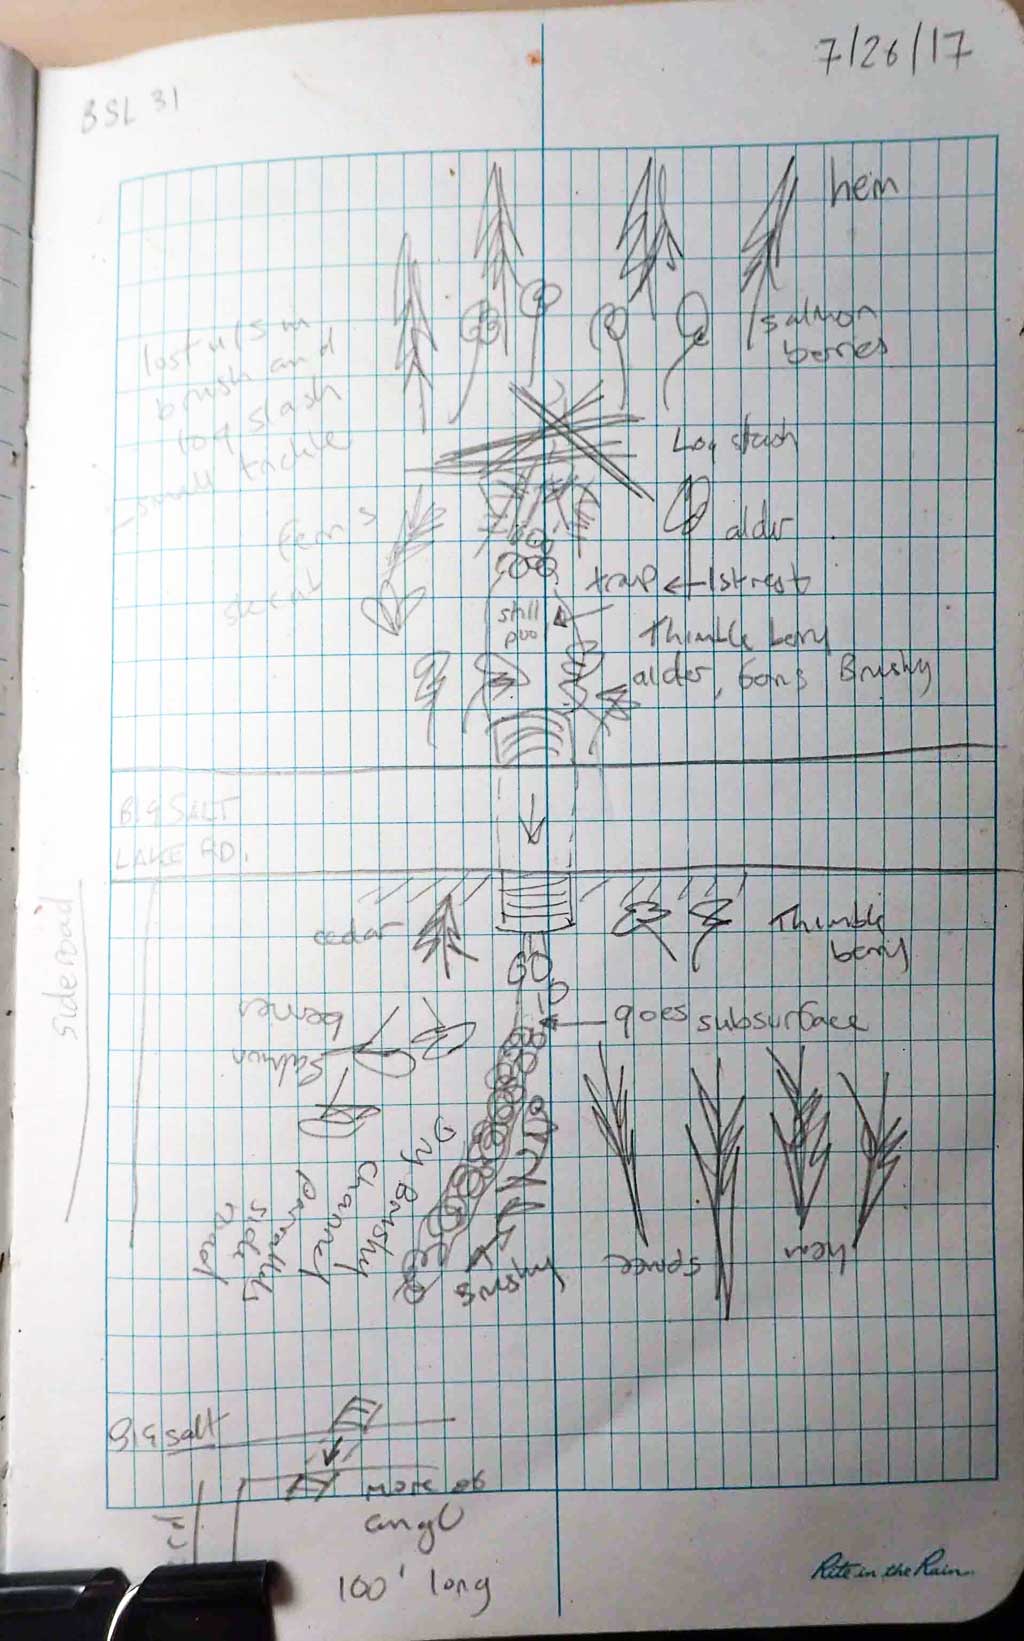 7/26/17
BSL 31
hem
salmon
berries
lost u/s in
brush and
log slash
- small trickle
Log slash
ferns
alder
skcab
trap ← 1st rest
still
poo
Thimble berry
alder, ferns Brushy
BIG SALT
LAKE RD.
side road
cedar
Thimble
berry
goes subsurface
Salmon
berries
Dry Brushy
Channel
Parallels
side
road
Brushy
spruce
hem
Big salt
more of
angle
100' long
Rite in the Rain